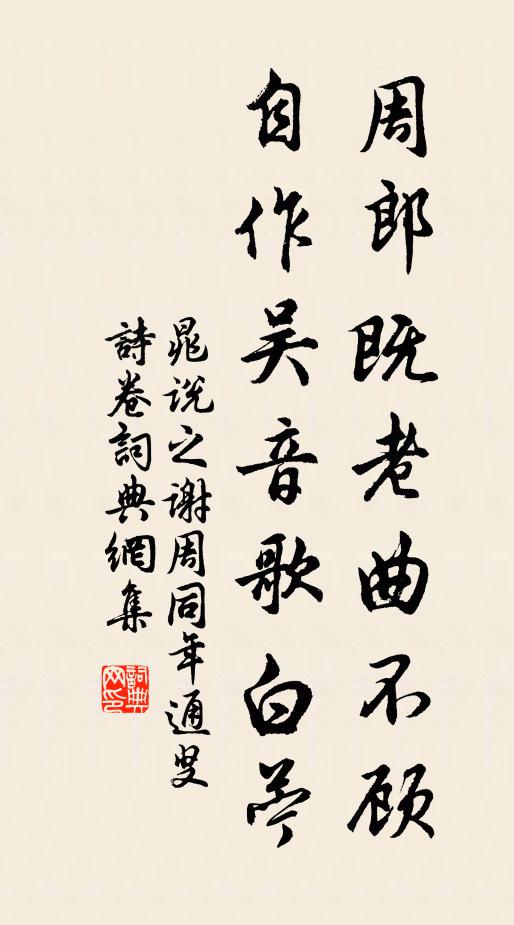 周郎既老曲不顾
自作吴音歌白苎
晁说之谢周同年通叟
詩卷詞典網集
詞典网印